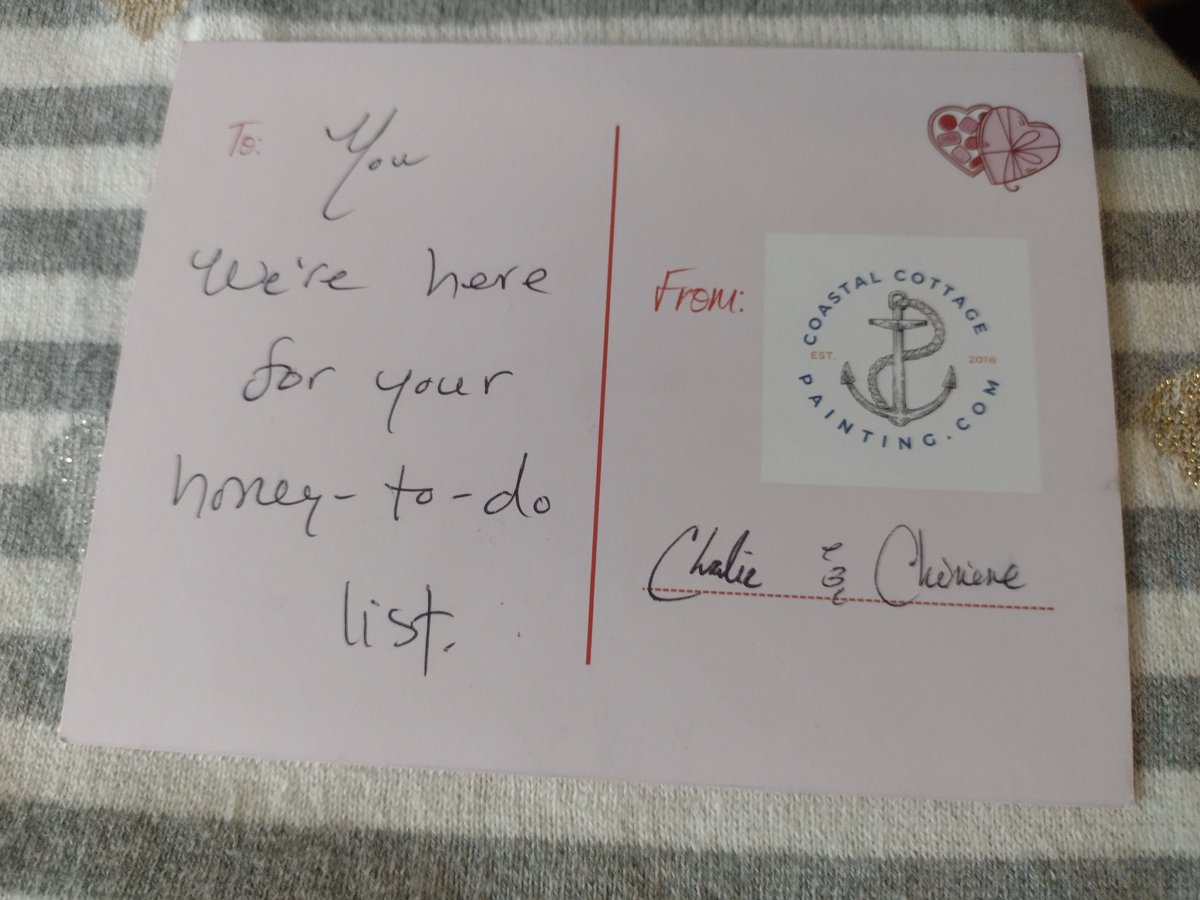 To: You
We're here
for your
honey-to-do
list.
From:
COASTAL COTTAGE
EST. 2016
PAINTING.COM
Charlie & Cheriene